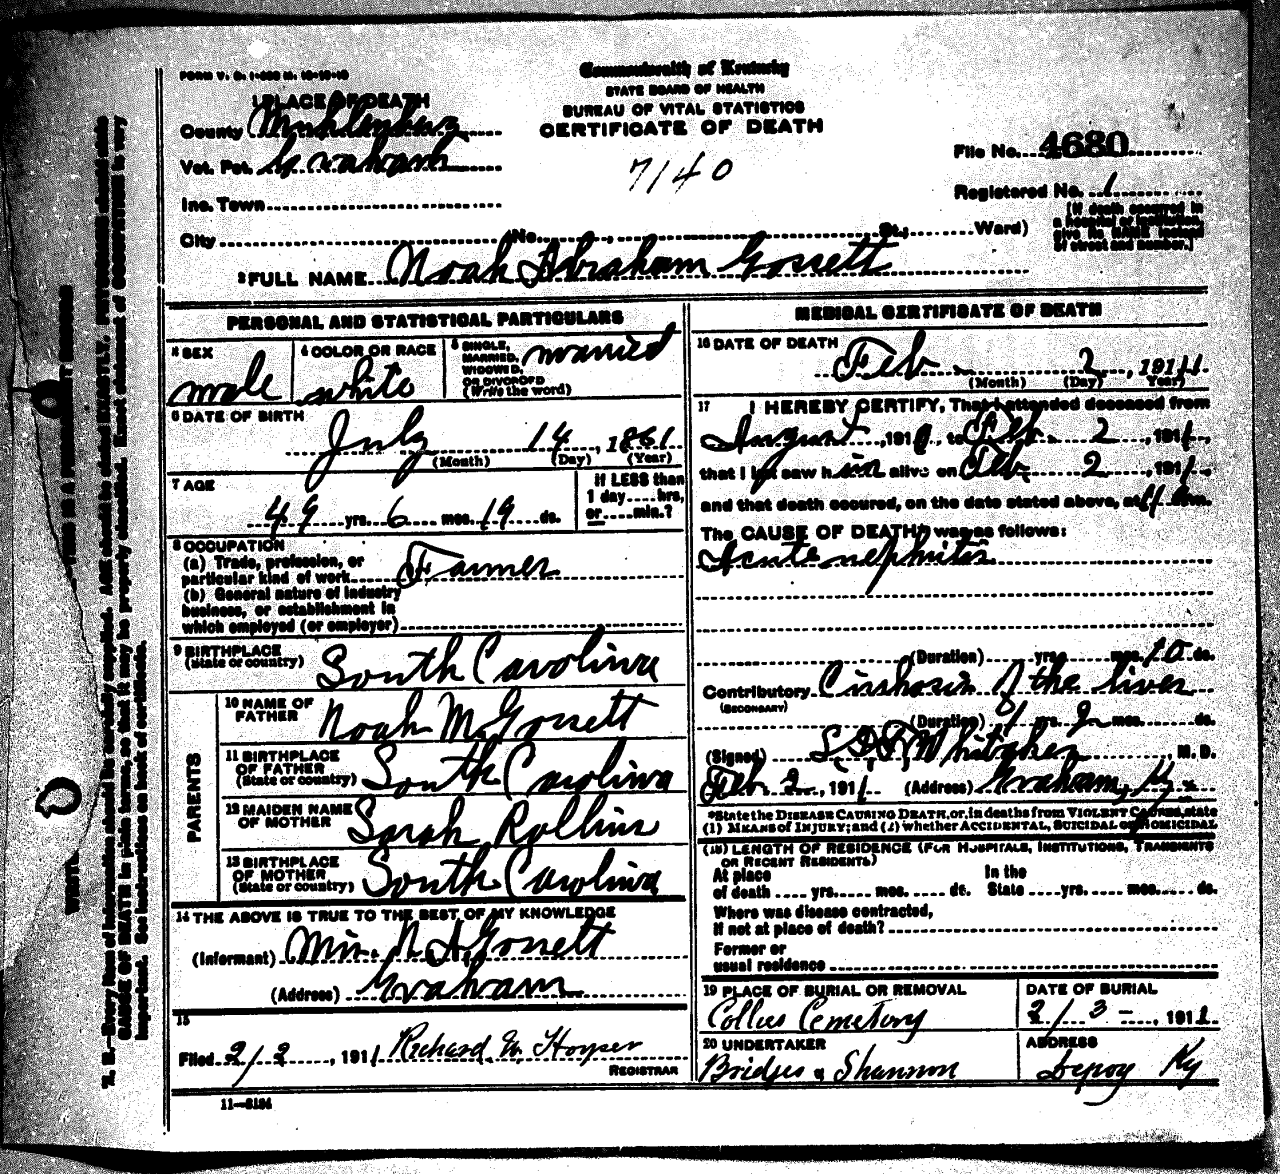 FORM V. S. 1-
Commonwealth of Kentucky
STATE BOARD OF HEALTH
BUREAU OF VITAL STATISTICS
CERTIFICATE OF DEATH
7140
1 PLACE OF DEATH
County Muhlenberg
Vot. Pct. Graham
Inc. Town
City
(No. St.; Ward)
File No. 4680
Registered No. 1
(If death occurred in
a hospital or institution,
give its NAME instead
of street and number.)
2 FULL NAME Noah Abraham Gossett
PERSONAL AND STATISTICAL PARTICULARS
3 SEX
male
4 COLOR OR RACE
white
5 SINGLE,
MARRIED,
WIDOWED,
OR DIVORCED
(Write the word)
married
6 DATE OF BIRTH
July 14, 1861
(Month) (Day) (Year)
7 AGE
49 yrs. 6 mos. 19 ds.
If LESS than
1 day hrs.
or min.?
8 OCCUPATION
(a) Trade, profession, or
particular kind of work Farmer
(b) General nature of industry
business, or establishment in
which employed (or employer)
9 BIRTHPLACE
(State or country) South Carolina
PARENTS
10 NAME OF
FATHER Noah M. Gossett
11 BIRTHPLACE
OF FATHER
(State or country) South Carolina
12 MAIDEN NAME
OF MOTHER Sarah Rollins
13 BIRTHPLACE
OF MOTHER
(State or country) South Carolina
14 THE ABOVE IS TRUE TO THE BEST OF MY KNOWLEDGE
(Informant) Mrs. N. A. Gossett
(Address) Graham
15
Filed 2/2, 1911 Richard
REGISTRAR
11—
MEDICAL CERTIFICATE OF DEATH
16 DATE OF DEATH
Feb 2, 1911
(Month) (Day) Year)
17 I HEREBY CERTIFY, That I attended deceased from
August, 191 to Feb. 2, 1911,
that I last saw him alive on Feb 2, 1911,
and that death occured, on the date stated above, at m.
The CAUSE OF DEATH was as follows:
Acute nephritis
(Duration) yrs. mos. 10 ds.
Contributory Cirrhosis of the liver
(SECONDARY)
(Duration) 1 yrs. 2 mos. ds.
(Signed) Whitaker, M. D.
Feb 2, 1911 (Address) Graham, Ky
*State the DISEASE CAUSING DEATH, or, in deaths from VIOLENT CAUSES, state
(1) MEANS of INJURY; and (2) whether ACCIDENTAL, SUICIDAL or HOMICIDAL
(18) LENGTH OF RESIDENCE (FOR HOSPITALS, INSTITUTIONS, TRANSIENTS
OR RECENT RESIDENTS)
At place In the
of death yrs. mos. ds. State yrs. mos. ds.
Where was disease contracted,
If not at place of death?
Former or
usual residence
19 PLACE OF BURIAL OR REMOVAL
Cemetery
DATE OF BURIAL
2/3, 1911
20 UNDERTAKER
Bridges & Shannon
ADDRESS
Depoy Ky
N. B.—Every item of information should be carefully supplied. AGE should be stated EXACTLY. PHYSICIANS should state
CAUSE OF DEATH in plain terms, so that it may be properly classified. Exact statement of OCCUPATION is very
important. See instructions on back of certificate.